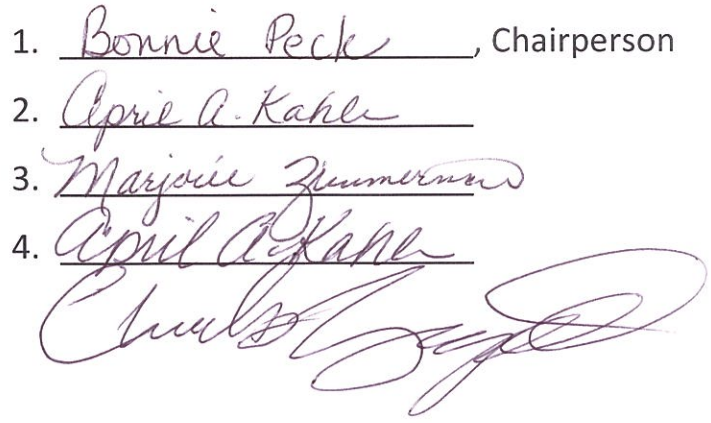 1. Bonnie Peck, Chairperson
2. April A. Kahle
3. Marjorie Zimmerman
4. April A. Kahle